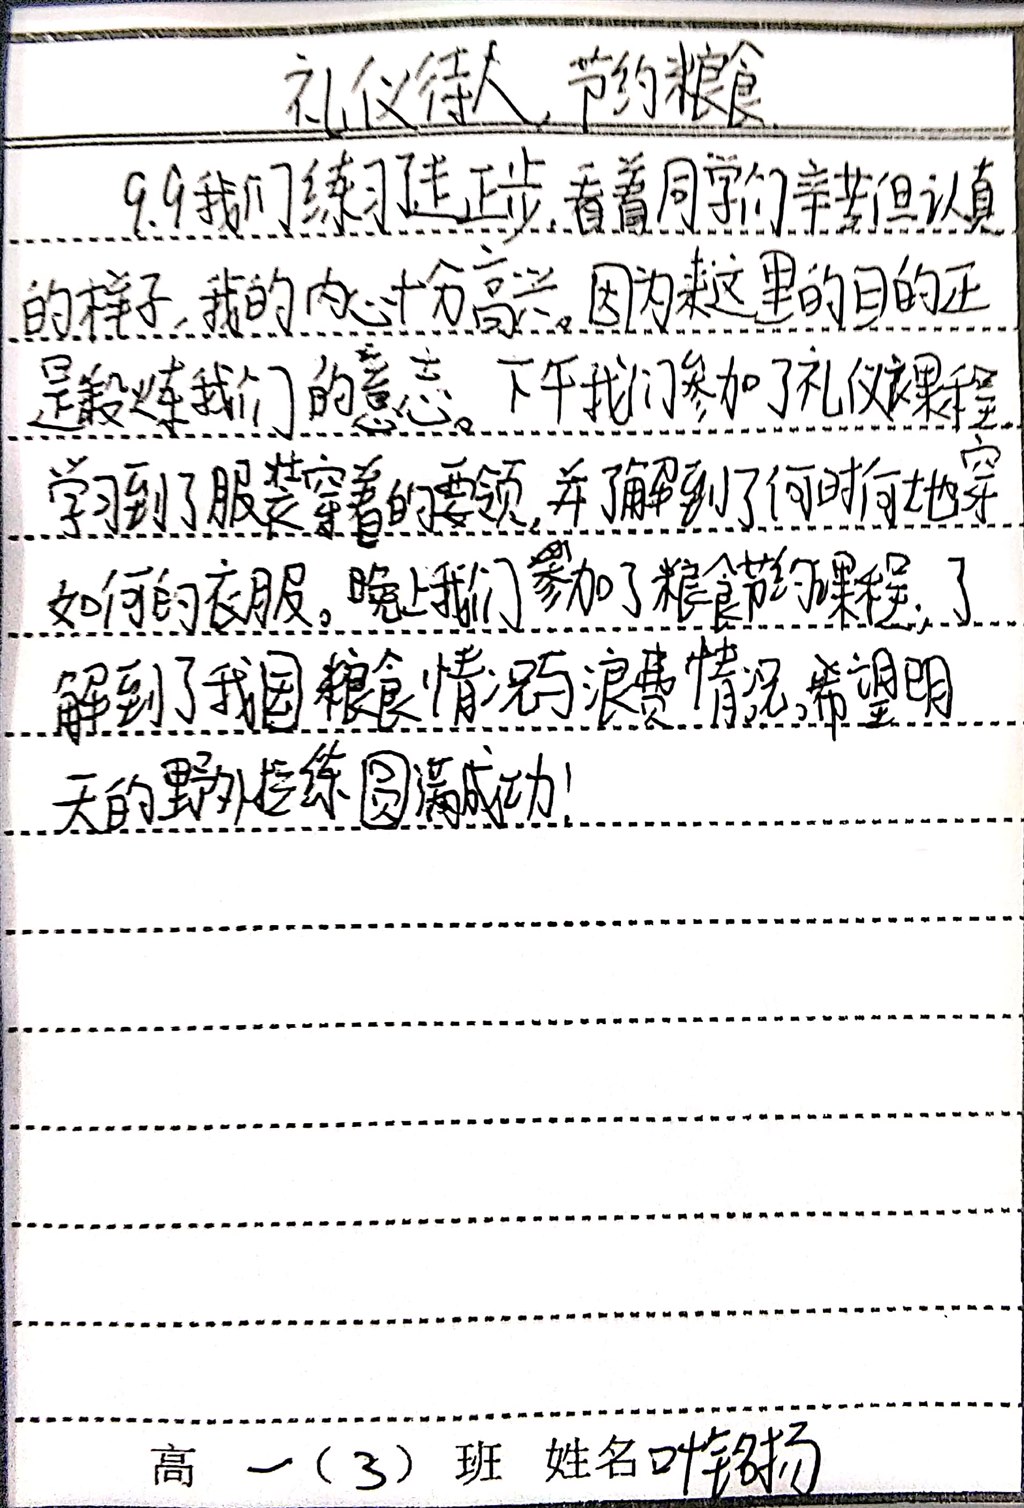 礼仪待人,节约粮食.
9.9我们练习了走正步,看着同学们辛苦但认真
的样子,我的内心十分高兴。因为来这里的目的正
是锻炼我们的意志。下午我们参加了礼仪课程.
学习到了服装穿着的要领,并了解到了何时何地穿
如何的衣服。晚上我们参加了粮食节约课程,了
解到了我国粮食情况与浪费情况,希望明
天的野外拉练圆满成功!
高一(3)班 姓名叶铭扬